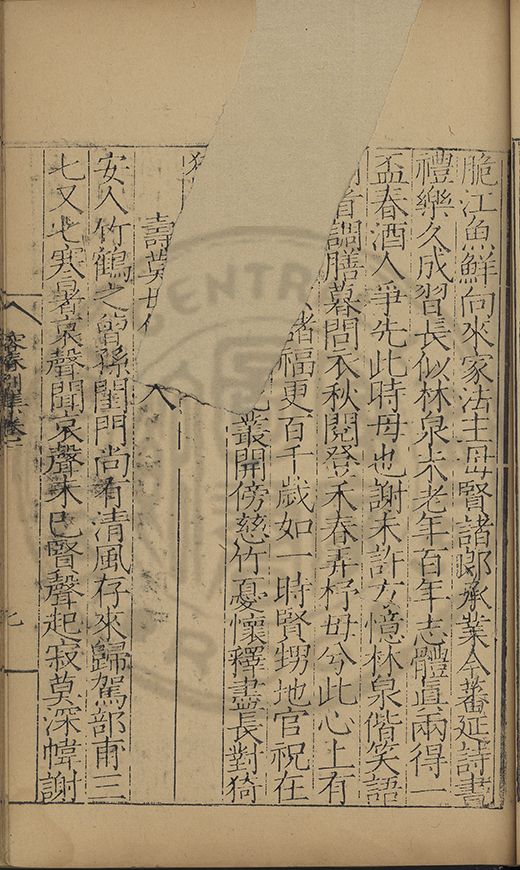 脆江魚鮮向來家法主母賢諸郎承業今蕃延詩書
禮樂久成習長似林泉未老年百年志體眞兩得一
盃春酒人爭先此時母也謝未許方憶林泉偕笑語
調膳暮問衣秋閱登禾春弄杼母兮此心上有
諸福更百千歲如一時賢甥地官祝在
叢開傍慈竹憂懷釋盡長對猗
猗
壽
安人竹鶴之曾孫閨門尚有清風存來歸駕部甫三
七又七寒暑哀聲聞哀聲未已賢聲起寂莫深幃謝
容春別集卷
七